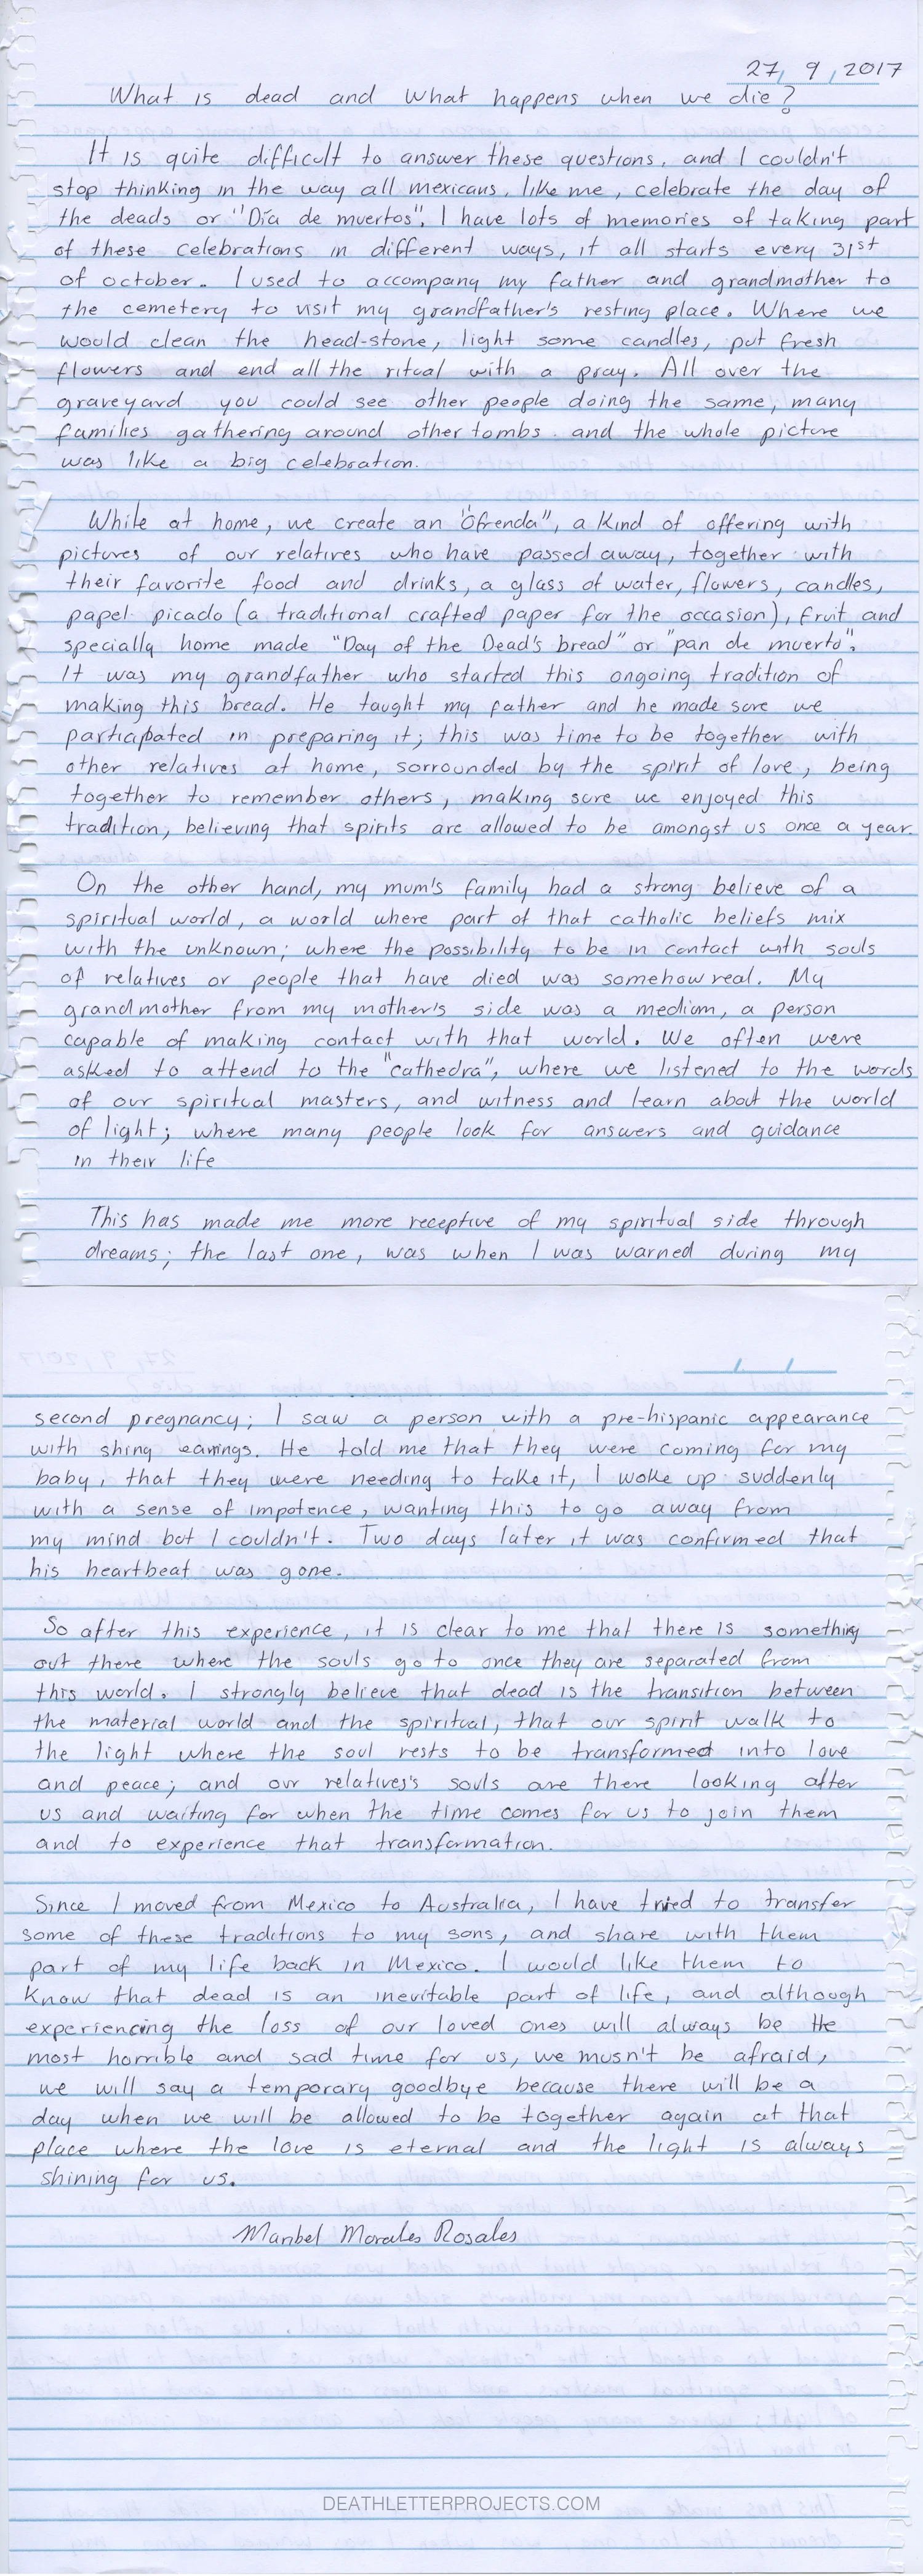 27, 9, 2017
What is dead and what happens when we die?
It is quite difficult to answer these questions, and I couldn't
stop thinking in the way all mexicans, like me, celebrate the day of
the deads or "Día de muertos". I have lots of memories of taking part
of these celebrations in different ways, it all starts every 31st
of october. I used to accompany my father and grandmother to
the cemetery to visit my grandfather's resting place. Where we
would clean the head-stone, light some candles, put fresh
flowers and end all the ritual with a pray. All over the
graveyard you could see other people doing the same, many
families gathering around other tombs and the whole picture
was like a big celebration.
While at home, we create an "Ofrenda", a kind of offering with
pictures of our relatives who have passed away, together with
their favorite food and drinks, a glass of water, flowers, candles,
papel picado (a traditional crafted paper for the occasion), fruit and
specially home made "Day of the Dead's bread" or "pan de muerto".
It was my grandfather who started this ongoing tradition of
making this bread. He taught my father and he made sure we
particpated in preparing it; this was time to be together with
other relatives at home, sorrounded by the spirit of love, being
together to remember others, making sure we enjoyed this
tradition, believing that spirits are allowed to be amongst us once a year.
On the other hand, my mum's family had a strong believe of a
spiritual world, a world where part of that catholic beliefs mix
with the unknown; where the possibility to be in contact with souls
of relatives or people that have died was somehow real. My
grandmother from my mother's side was a medium, a person
capable of making contact with that world. We often were
asked to attend to the "cathedra", where we listened to the words
of our spiritual masters, and witness and learn about the world
of light; where many people look for answers and guidance
in their life
This has made me more receptive of my spiritual side through
dreams; the last one, was when I was warned during my
second pregnancy; I saw a person with a pre-hispanic appearance
with shing earings. He told me that they were coming for my
baby, that they were needing to take it, I woke up suddenly
with a sense of impotence, wanting this to go away from
my mind but I couldn't. Two days later it was confirmed that
his heartbeat was gone.
So after this experience, it is clear to me that there is something
out there where the souls go to once they are separated from
this world. I strongly believe that dead is the transition between
the material world and the spiritual, that our spirit walk to
the light where the soul rests to be transformed into love
and peace; and our relatives's souls are there looking after
us and waiting for when the time comes for us to join them
and to experience that transformation.
Since I moved from Mexico to Australia, I have tried to transfer
some of these traditions to my sons, and share with them
part of my life back in Mexico. I would like them to
know that dead is an inevitable part of life, and although
experiencing the loss of our loved ones will always be the
most horrible and sad time for us, we musn't be afraid,
we will say a temporary goodbye because there will be a
day when we will be allowed to be together again at that
place where the love is eternal and the light is always
shining for us.
Maribel Morales Rosales
DEATHLETTERPROJECTS.COM